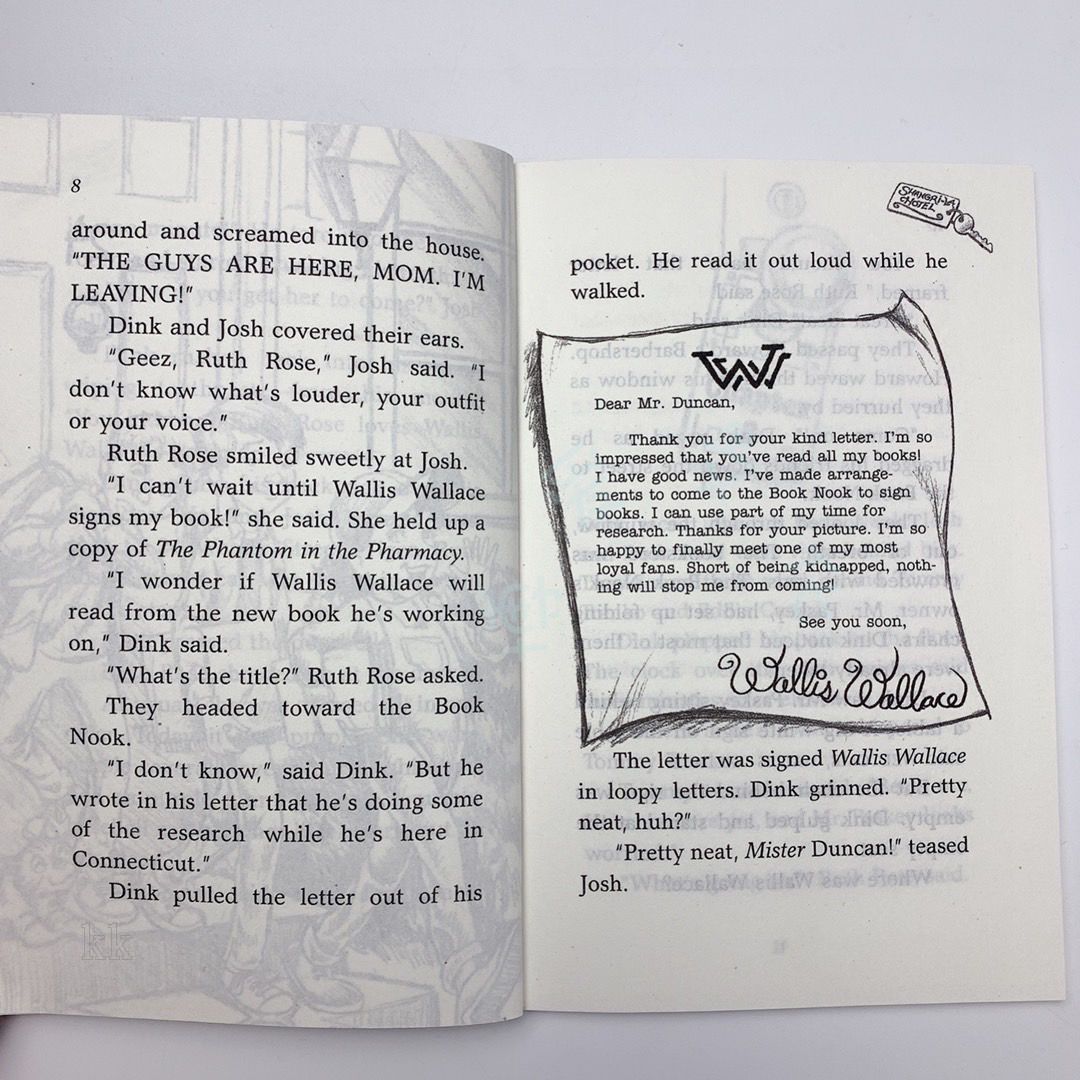 8
around and screamed into the house.
"THE GUYS ARE HERE, MOM. I'M
LEAVING!"
Dink and Josh covered their ears.
"Geez, Ruth Rose," Josh said. "I
don't know what's louder, your outfit
or your voice."
Ruth Rose smiled sweetly at Josh.
"I can't wait until Wallis Wallace
signs my book!" she said. She held up a
copy of The Phantom in the Pharmacy.
"I wonder if Wallis Wallace will
read from the new book he's working
on," Dink said.
"What's the title?" Ruth Rose asked.
They headed toward the Book
Nook.
"I don't know," said Dink. "But he
wrote in his letter that he's doing some
of the research while he's here in
Connecticut."
Dink pulled the letter out of his
kk
SHANGRI-LA
HOTEL
pocket. He read it out loud while he
walked.
WW
Dear Mr. Duncan,
Thank you for your kind letter. I'm so
impressed that you've read all my books!
I have good news. I've made arrange-
ments to come to the Book Nook to sign
books. I can use part of my time for
research. Thanks for your picture. I'm so
happy to finally meet one of my most
loyal fans. Short of being kidnapped, noth-
ing will stop me from coming!
See you soon,
Wallis Wallace
The letter was signed Wallis Wallace
in loopy letters. Dink grinned. "Pretty
neat, huh?"
"Pretty neat, Mister Duncan!" teased
Josh.